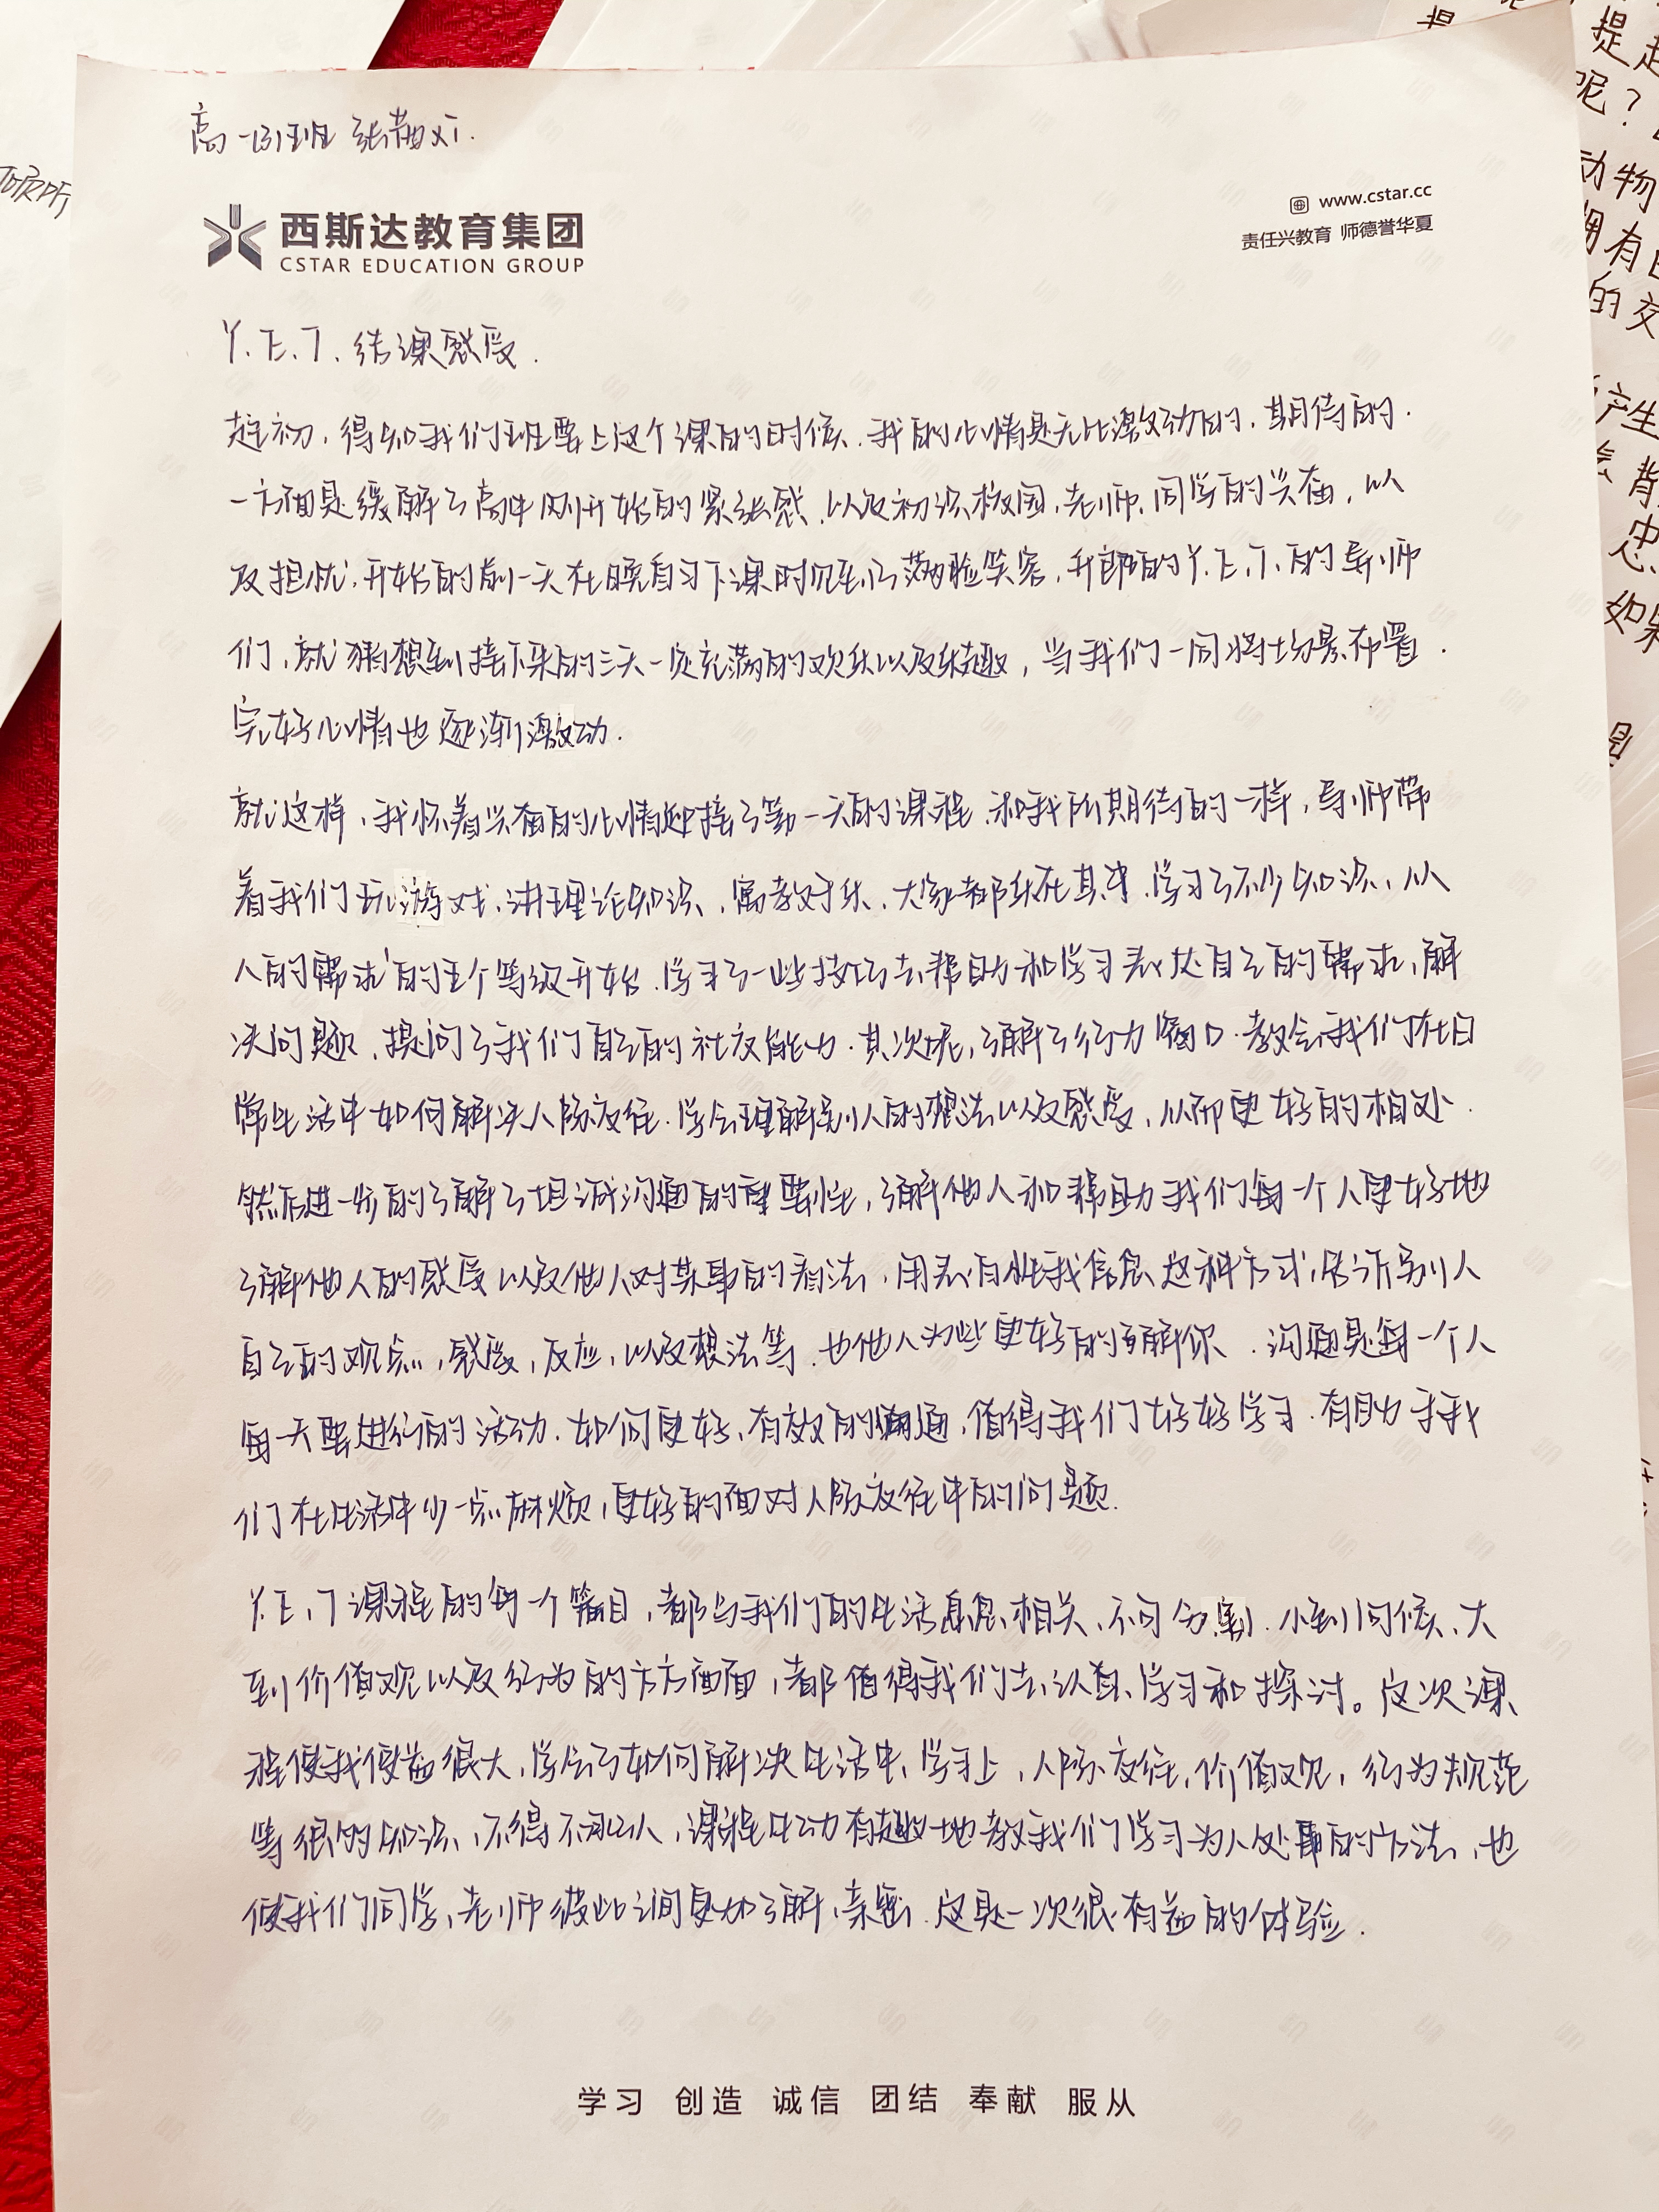 高一 班 张
西斯达教育集团
CSTAR EDUCATION GROUP
www.cstar.cc
责任兴教育 师德誉华夏
Y.E.T.结课感受.
起初,得知我们班要上这个课的时候,我的心情是无比激动的,期待的.
一方面是缓解了高中刚开始的紧张感,以及初识校园,老师,同学的兴奋,以
及担忧,开始的前一天在晚自习下课时见到了满脸笑容,开朗的Y.E.T.的导师
们,就猜想到接下来的三天一定充满的欢乐以及乐趣,当我们一同将场景布置.
完好心情也逐渐激动.
就这样,我怀着兴奋的心情迎接了第一天的课程,和我所期待的一样,导师带
着我们玩游戏,讲理论知识,寓教于乐,大家都乐在其中,学习了不少知识,从
人的需求的五个等级开始,学习了一些技巧去帮助和学习表达自己的需求,解
决问题,提问了我们自己的社交能力.其次呢,了解了行为窗口.教会我们在日
常生活中如何解决人际交往.学会理解别人的想法以及感受,从而更好的相处.
然后进一步的了解了坦诚沟通的重要性,了解他人和帮助我们每一个人更好地
了解他人的感受以及他人对某事的看法,用表白性我信息这种方式,告诉别人
自己的观点,感受,反应,以及想法等.也他人为些更好的了解你.沟通是每一个人
每一天要进行的活动.如何更好、有效的沟通,值得我们好好学习.有助于我
们在生活中少一点麻烦,更好的面对人际交往中的问题.
Y.E.T课程的每一个篇目,都与我们的生活息息相关、不可分割.小到问候、大
到价值观以及行为的方方面面,都值得我们去认真、学习和探讨。这次课
程使我受益很大,学会了如何解决生活中、学习上,人际交往,价值观,行为规范
等很多知识,不得不承认,课程生动有趣地教我们学习为人处事的方法,也
使我们同学、老师彼此之间更加了解,亲密.这是一次很有益的体验.
学习 创造 诚信 团结 奉献 服从
提
提起
呢?
动物
拥有
的交
产生
背
忠
如果
是